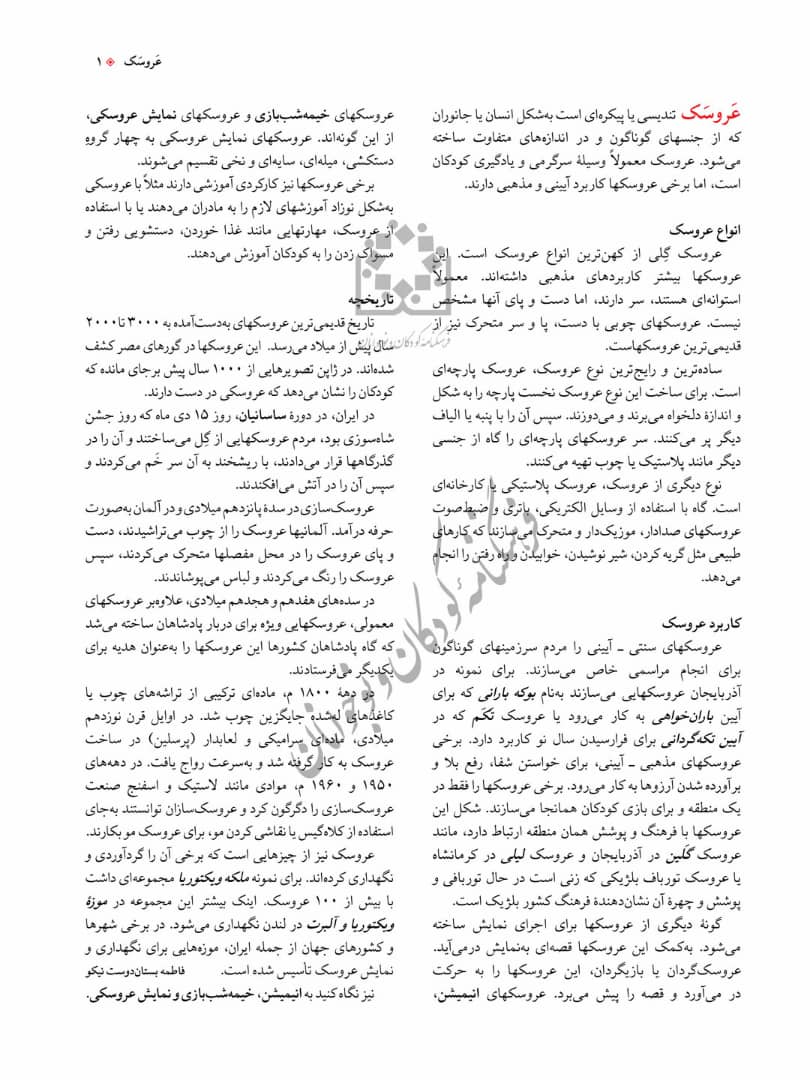 عَروسَک ۱
عَروسَک تندیسی یا پیکره‌ای است به‌شکل انسان یا جانوران
که از جنسهای گوناگون و در اندازه‌های متفاوت ساخته
می‌شود. عروسک معمولاً وسیلهٔ سرگرمی و یادگیری کودکان
است، اما برخی عروسکها کاربرد آیینی و مذهبی دارند.
انواع عروسک
عروسک گِلی از کهن‌ترین انواع عروسک است. این
عروسکها بیشتر کاربردهای مذهبی داشته‌اند. معمولاً
استوانه‌ای هستند، سر دارند، اما دست و پای آنها مشخص
نیست. عروسکهای چوبی با دست، پا و سر متحرک نیز از
قدیمی‌ترین عروسکهاست.
ساده‌ترین و رایج‌ترین نوع عروسک، عروسک پارچه‌ای
است. برای ساخت این نوع عروسک نخست پارچه را به شکل
و اندازهٔ دلخواه می‌برند و می‌دوزند. سپس آن را با پنبه یا الیاف
دیگر پر می‌کنند. سر عروسکهای پارچه‌ای را گاه از جنسی
دیگر مانند پلاستیک یا چوب تهیه می‌کنند.
نوع دیگری از عروسک، عروسک پلاستیکی یا کارخانه‌ای
است. گاه با استفاده از وسایل الکتریکی، باتری و ضبط‌صوت
عروسکهای صدادار، موزیک‌دار و متحرک می‌سازند که کارهای
طبیعی مثل گریه کردن، شیر نوشیدن، خوابیدن و راه رفتن را انجام
می‌دهد.
کاربرد عروسک
عروسکهای سنتی ـ آیینی را مردم سرزمینهای گوناگون
برای انجام مراسمی خاص می‌سازند. برای نمونه در
آذربایجان عروسکهایی می‌سازند به‌نام بوکه بارانی که برای
آیین باران‌خواهی به کار می‌رود یا عروسک تَکَم که در
آیین تکه‌گردانی برای فرارسیدن سال نو کاربرد دارد. برخی
عروسکهای مذهبی ـ آیینی، برای خواستن شفا، رفع بلا و
برآورده شدن آرزوها به کار می‌رود. برخی عروسکها را فقط در
یک منطقه و برای بازی کودکان همانجا می‌سازند. شکل این
عروسکها با فرهنگ و پوشش همان منطقه ارتباط دارد، مانند
عروسک گَلین در آذربایجان و عروسک لیلی در کرمانشاه
یا عروسک تورباف بلژیکی که زنی است در حال توربافی و
پوشش و چهرهٔ آن نشان‌دهندهٔ فرهنگ کشور بلژیک است.
گونهٔ دیگری از عروسکها برای اجرای نمایش ساخته
می‌شود. به‌کمک این عروسکها قصه‌ای به‌نمایش درمی‌آید.
عروسک‌گردان یا بازیگردان، این عروسکها را به حرکت
در می‌آورد و قصه را پیش می‌برد. عروسکهای انیمیشن،
عروسکهای خیمه‌شب‌بازی و عروسکهای نمایش عروسکی،
از این گونه‌اند. عروسکهای نمایش عروسکی به چهار گروهِ
دستکشی، میله‌ای، سایه‌ای و نخی تقسیم می‌شوند.
برخی عروسکها نیز کارکردی آموزشی دارند مثلاً با عروسکی
به‌شکل نوزاد آموزشهای لازم را به مادران می‌دهند یا با استفاده
از عروسک، مهارتهایی مانند غذا خوردن، دستشویی رفتن و
مسواک زدن را به کودکان آموزش می‌دهند.
تاریخچه
تاریخ قدیمی‌ترین عروسکهای به‌دست‌آمده به ۳۰۰۰ تا ۲۰۰۰
سال پیش از میلاد می‌رسد. این عروسکها در گورهای مصر کشف
شده‌اند. در ژاپن تصویرهایی از ۱۰۰۰ سال پیش برجای مانده که
کودکان را نشان می‌دهد که عروسکی در دست دارند.
در ایران، در دورهٔ ساسانیان، روز ۱۵ دی ماه که روز جشن
شاه‌سوزی بود، مردم عروسکهایی از گِل می‌ساختند و آن را در
گذرگاهها قرار می‌دادند، با ریشخند به آن سر خَم می‌کردند و
سپس آن را در آتش می‌افکندند.
عروسک‌سازی در سدهٔ پانزدهم میلادی و در آلمان به‌صورت
حرفه درآمد. آلمانیها عروسک را از چوب می‌تراشیدند، دست
و پای عروسک را در محل مفصلها متحرک می‌کردند، سپس
عروسک را رنگ می‌کردند و لباس می‌پوشاندند.
در سده‌های هفدهم و هجدهم میلادی، علاوه‌بر عروسکهای
معمولی، عروسکهایی ویژه برای دربار پادشاهان ساخته می‌شد
که گاه پادشاهان کشورها این عروسکها را به‌عنوان هدیه برای
یکدیگر می‌فرستادند.
در دههٔ ۱۸۰۰ م، ماده‌ای ترکیبی از تراشه‌های چوب یا
کاغذهای له‌شده جایگزین چوب شد. در اوایل قرن نوزدهم
میلادی، ماده‌ای سرامیکی و لعابدار (پرسلین) در ساخت
عروسک به کار گرفته شد و به‌سرعت رواج یافت. در دهه‌های
۱۹۵۰ و ۱۹۶۰ م، موادی مانند لاستیک و اسفنج صنعت
عروسک‌سازی را دگرگون کرد و عروسک‌سازان توانستند به‌جای
استفاده از کلاه‌گیس یا نقاشی کردن مو، برای عروسک مو بکارند.
عروسک نیز از چیزهایی است که برخی آن را گردآوری و
نگهداری کرده‌اند. برای نمونه ملکه ویکتوریا مجموعه‌ای داشت
با بیش از ۱۰۰ عروسک. اینک بیشتر این مجموعه در موزهٔ
ویکتوریا و آلبرت در لندن نگهداری می‌شود. در برخی شهرها
و کشورهای جهان از جمله ایران، موزه‌هایی برای نگهداری و
نمایش عروسک تأسیس شده است. فاطمه بستان‌دوست نیکو
نیز نگاه کنید به انیمیشن، خیمه‌شب‌بازی و نمایش عروسکی.
فرهنگنامه کودکان و نوجوانان
فرهنگنامه کودکان و نوجوانان